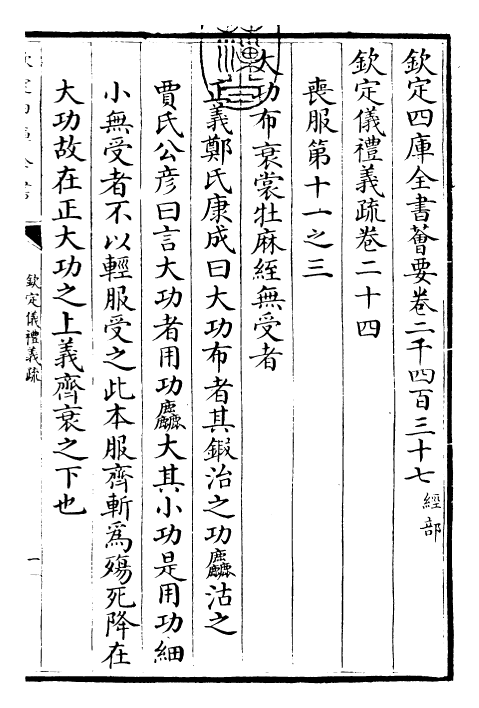 欽定四庫全書薈要卷二千四百三十七 經部
欽定儀禮義疏卷二十四
喪服第十一之三
大功布衰裳牡麻絰無受者
正義鄭氏康成曰大功布者其鍛治之功麤沽之
賈氏公彦曰言大功者用功麤大其小功是用功細
小無受者不以輕服受之此本服齊斬為殤死降在
大功故在正大功之上義齊衰之下也
欽定儀禮義疏
一